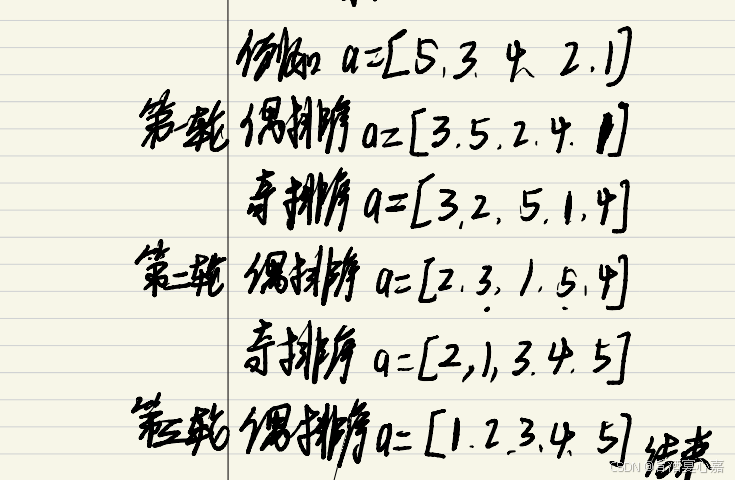 例如 a=[5.3.4.2.1]
第一轮 偶排序 a=[3.5.2.4.1]
奇排序 a=[3,2.5.1.4]
第二轮 偶排序 a=[2.3.1.5.4]
奇排序 a=[2,1,3.4.5]
第三轮 偶排序 a=[1.2.3.4.5] 结束